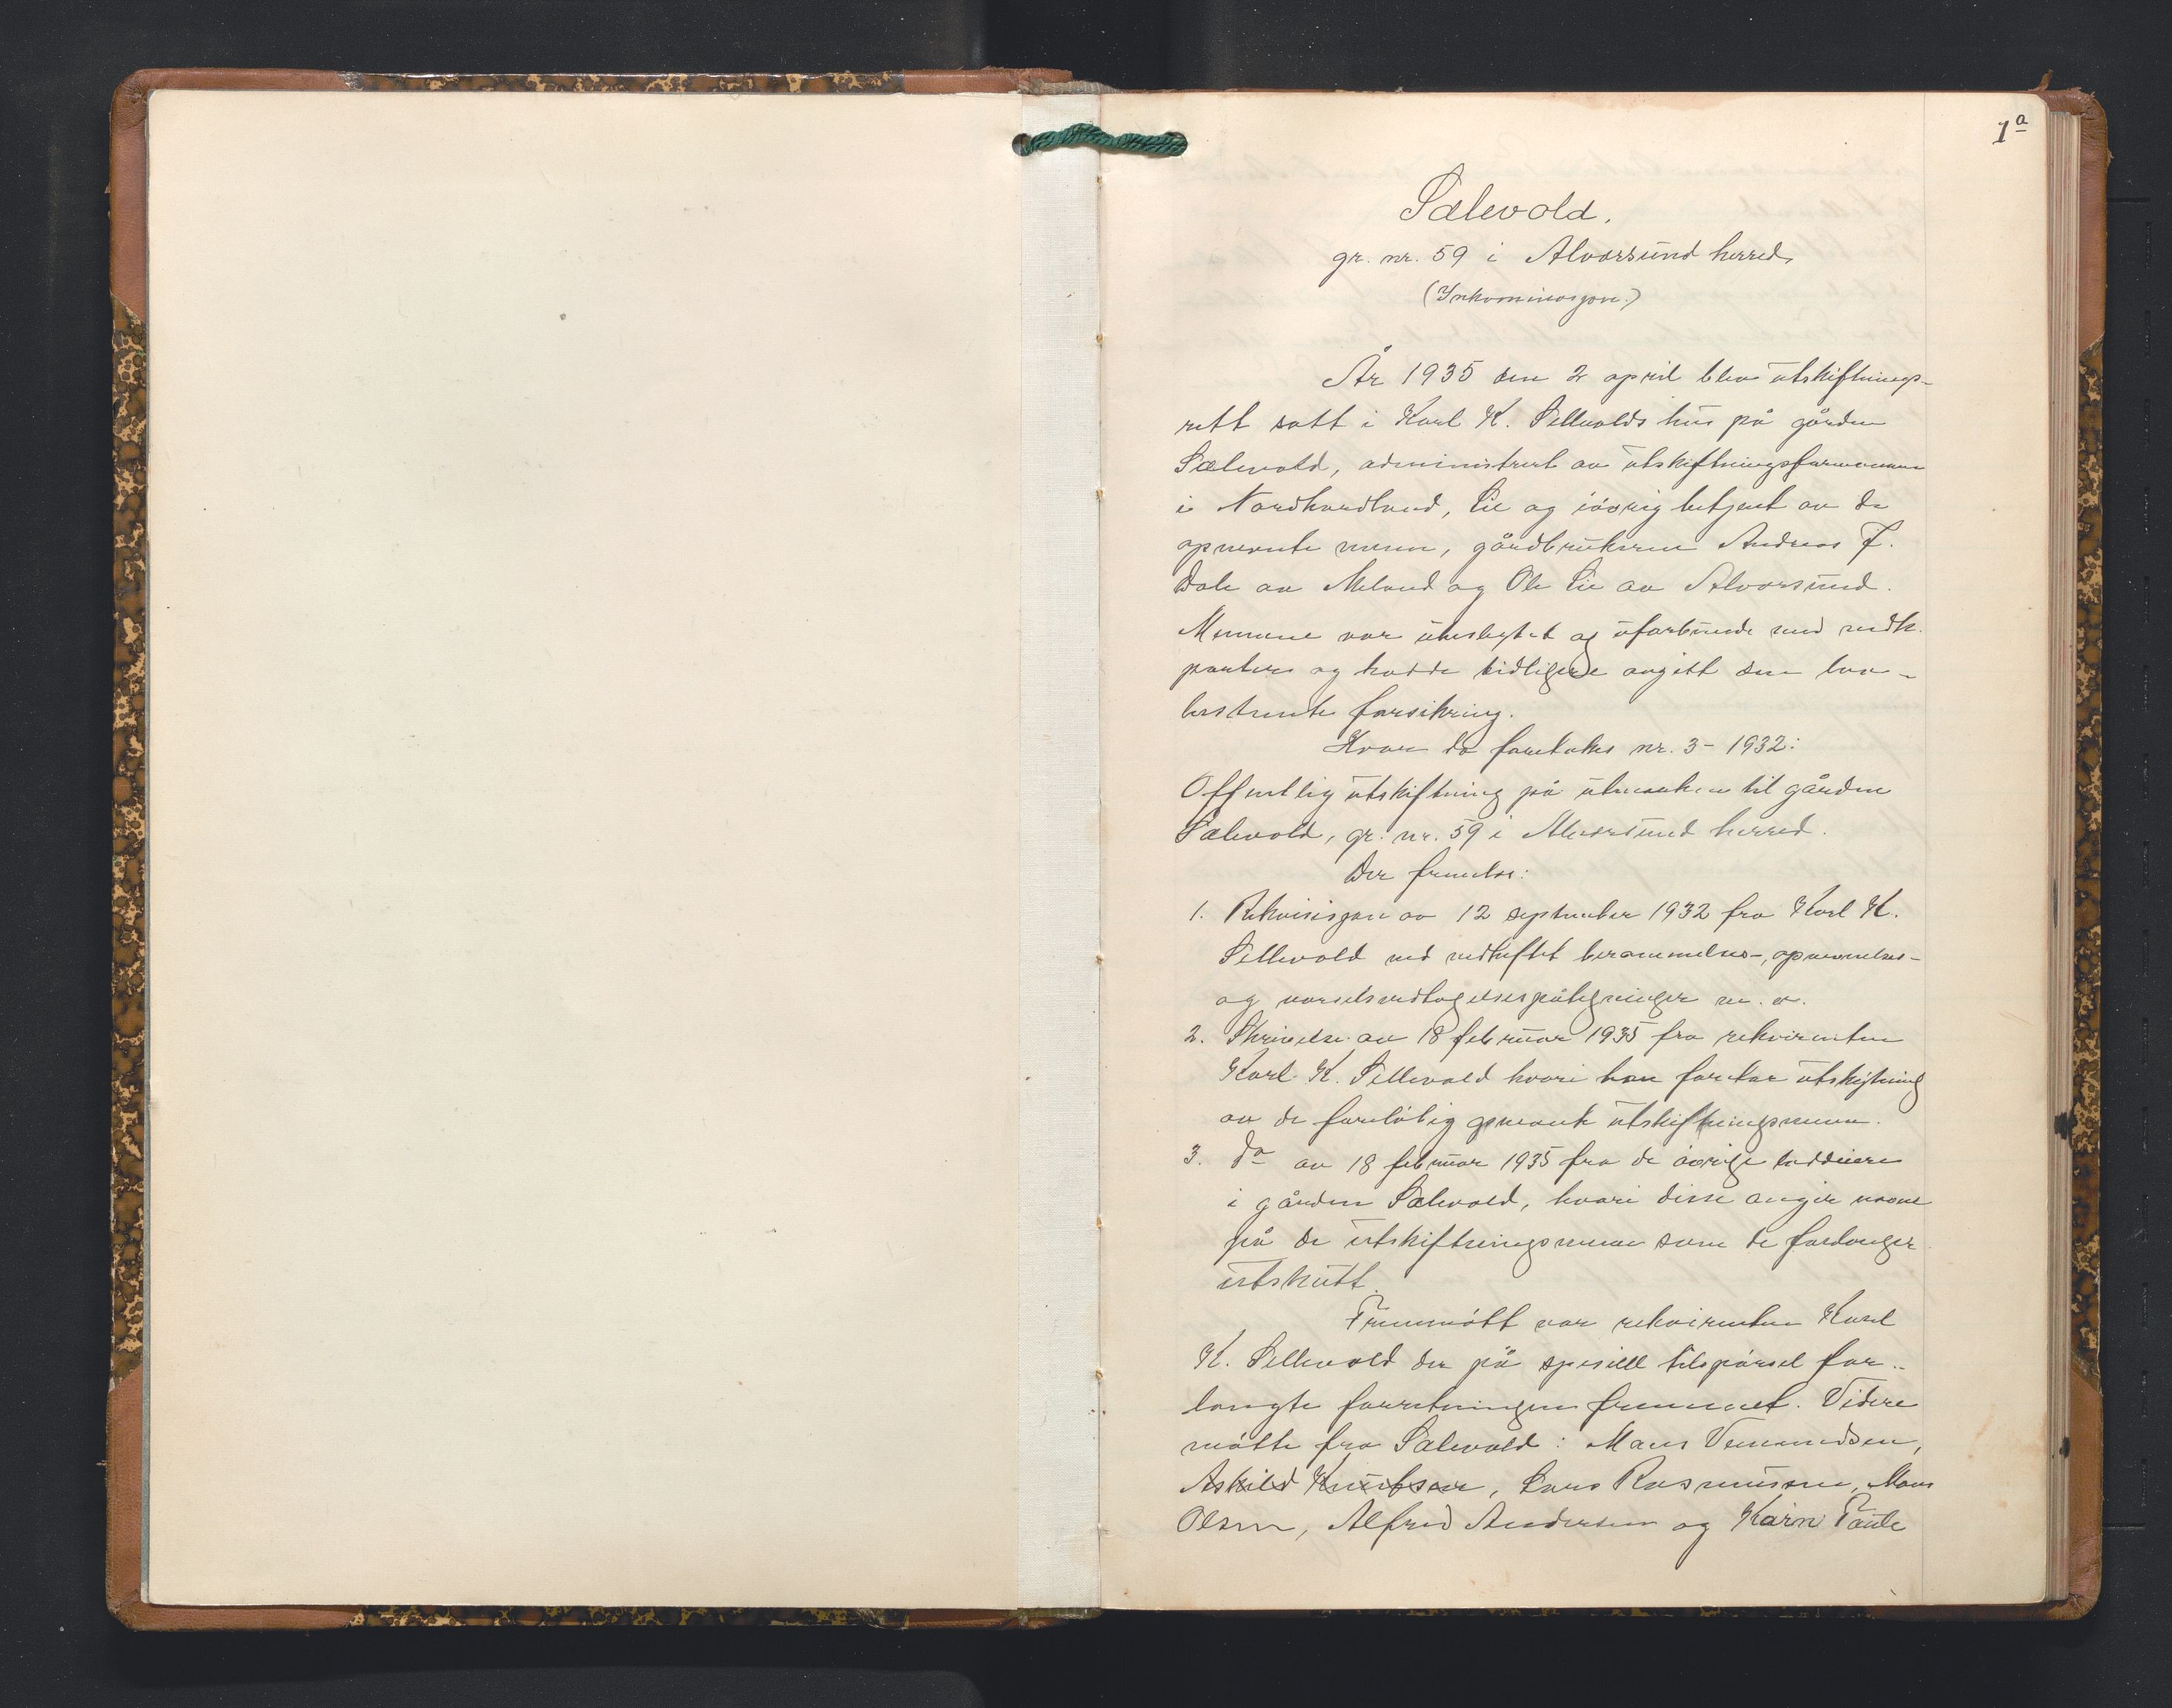 1a
Sælevold.
gr. nr. 59 i Alversund herred
(Inkaminasjon.)
År 1935 den 2 april blev utskiftnings-
rett satt i Karl K. Sellevolds hus på gården
Sælevold, administrert av utskiftningsformannen
i Nordhordland, Lie og iøvrig betjent av de
opnevnte menn, gårdbrukerne Andreas J.
Dale av Meland og Ole Lie av Alversund.
Mennene var ubeslegtet og uforbundne med vedk.
parter og hadde tidligere avgitt den lov-
bestemte forsikring.
Hvor da foretokes nr. 3 - 1932:
Offentlig utskiftning på utmarken til gården
Sælevold, gr. nr. 59 i Alversund herred.
Der fremlåe:
1. Rekvisisjon av 12 september 1932 fra Karl K.
Sellevold med vedheftet berammelses-, opnevnelses-
og varselsvedtagelsespåtegninger m. v.
2. Skrivelse av 18 februar 1935 fra rekvirenten
Karl K. Sellevold hvori han foretar utskytning
av de foreløbig opnevnte utskiftningsmenn.
3. do av 18 februar 1935 fra de øvrige loddeiere
i gården Sælevold, hvori disse angir navne
på de utskiftningsmenn som de forlanger
utskutt.
Fremmøtt var rekvirenten Karl
K. Sellevold der på spesiell tilspørsel for-
langte forretningen fremmet. Videre
møtte fra Sælevold: Mons Vemundsen,
Askild Knutsen, Lars Rasmussen, Mons
Olsen, Alfred Andersen og Karn Taule